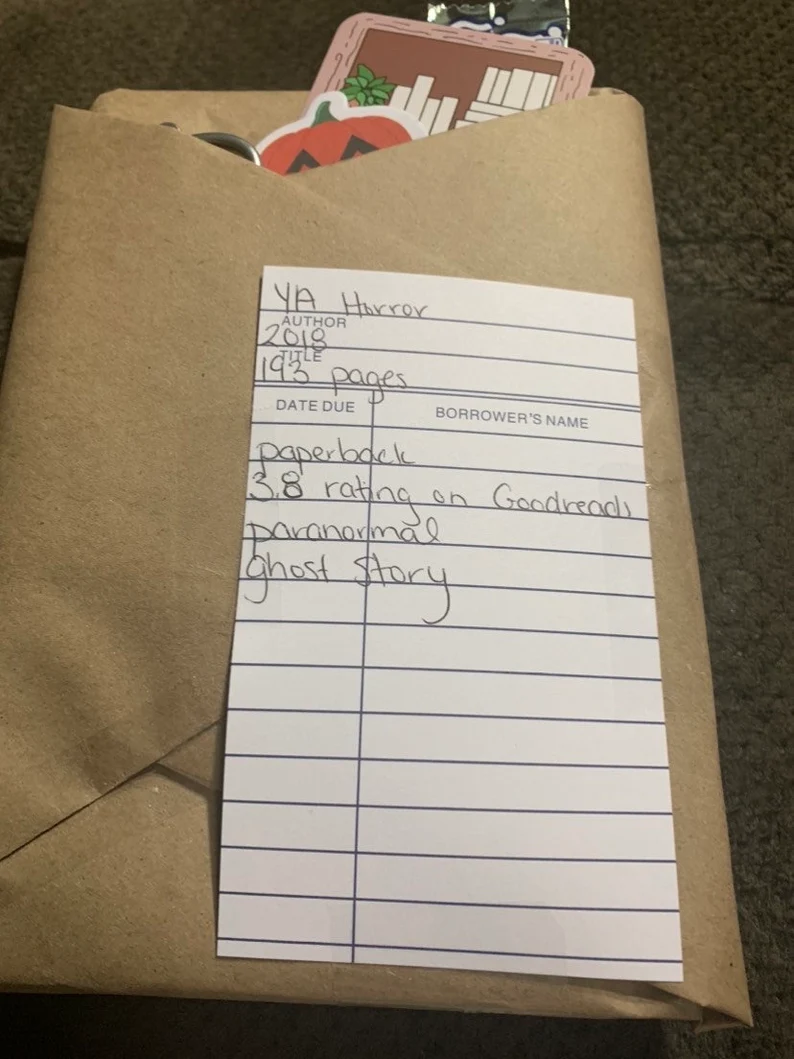 YA Horror
AUTHOR
2018
TITLE
193 pages
DATE DUE
BORROWER'S NAME
paperback
3.8 rating on Goodreads
paranormal
ghost story